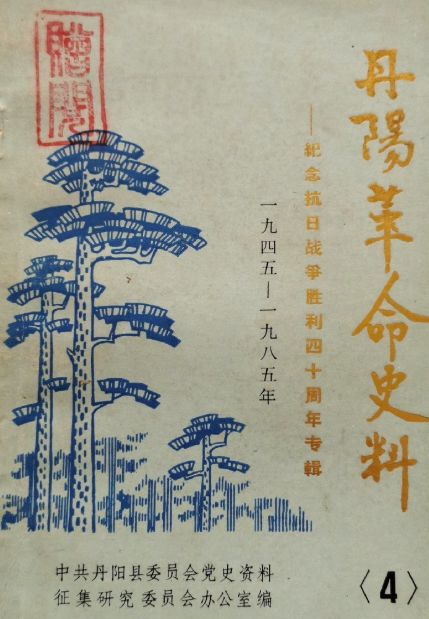 赠阅
丹陽革命史料
——紀念抗日战爭胜利四十周年专輯
一九四五—一九八五年
中共丹阳县委员会党史资料
征集研究委员会办公室编
〈4〉